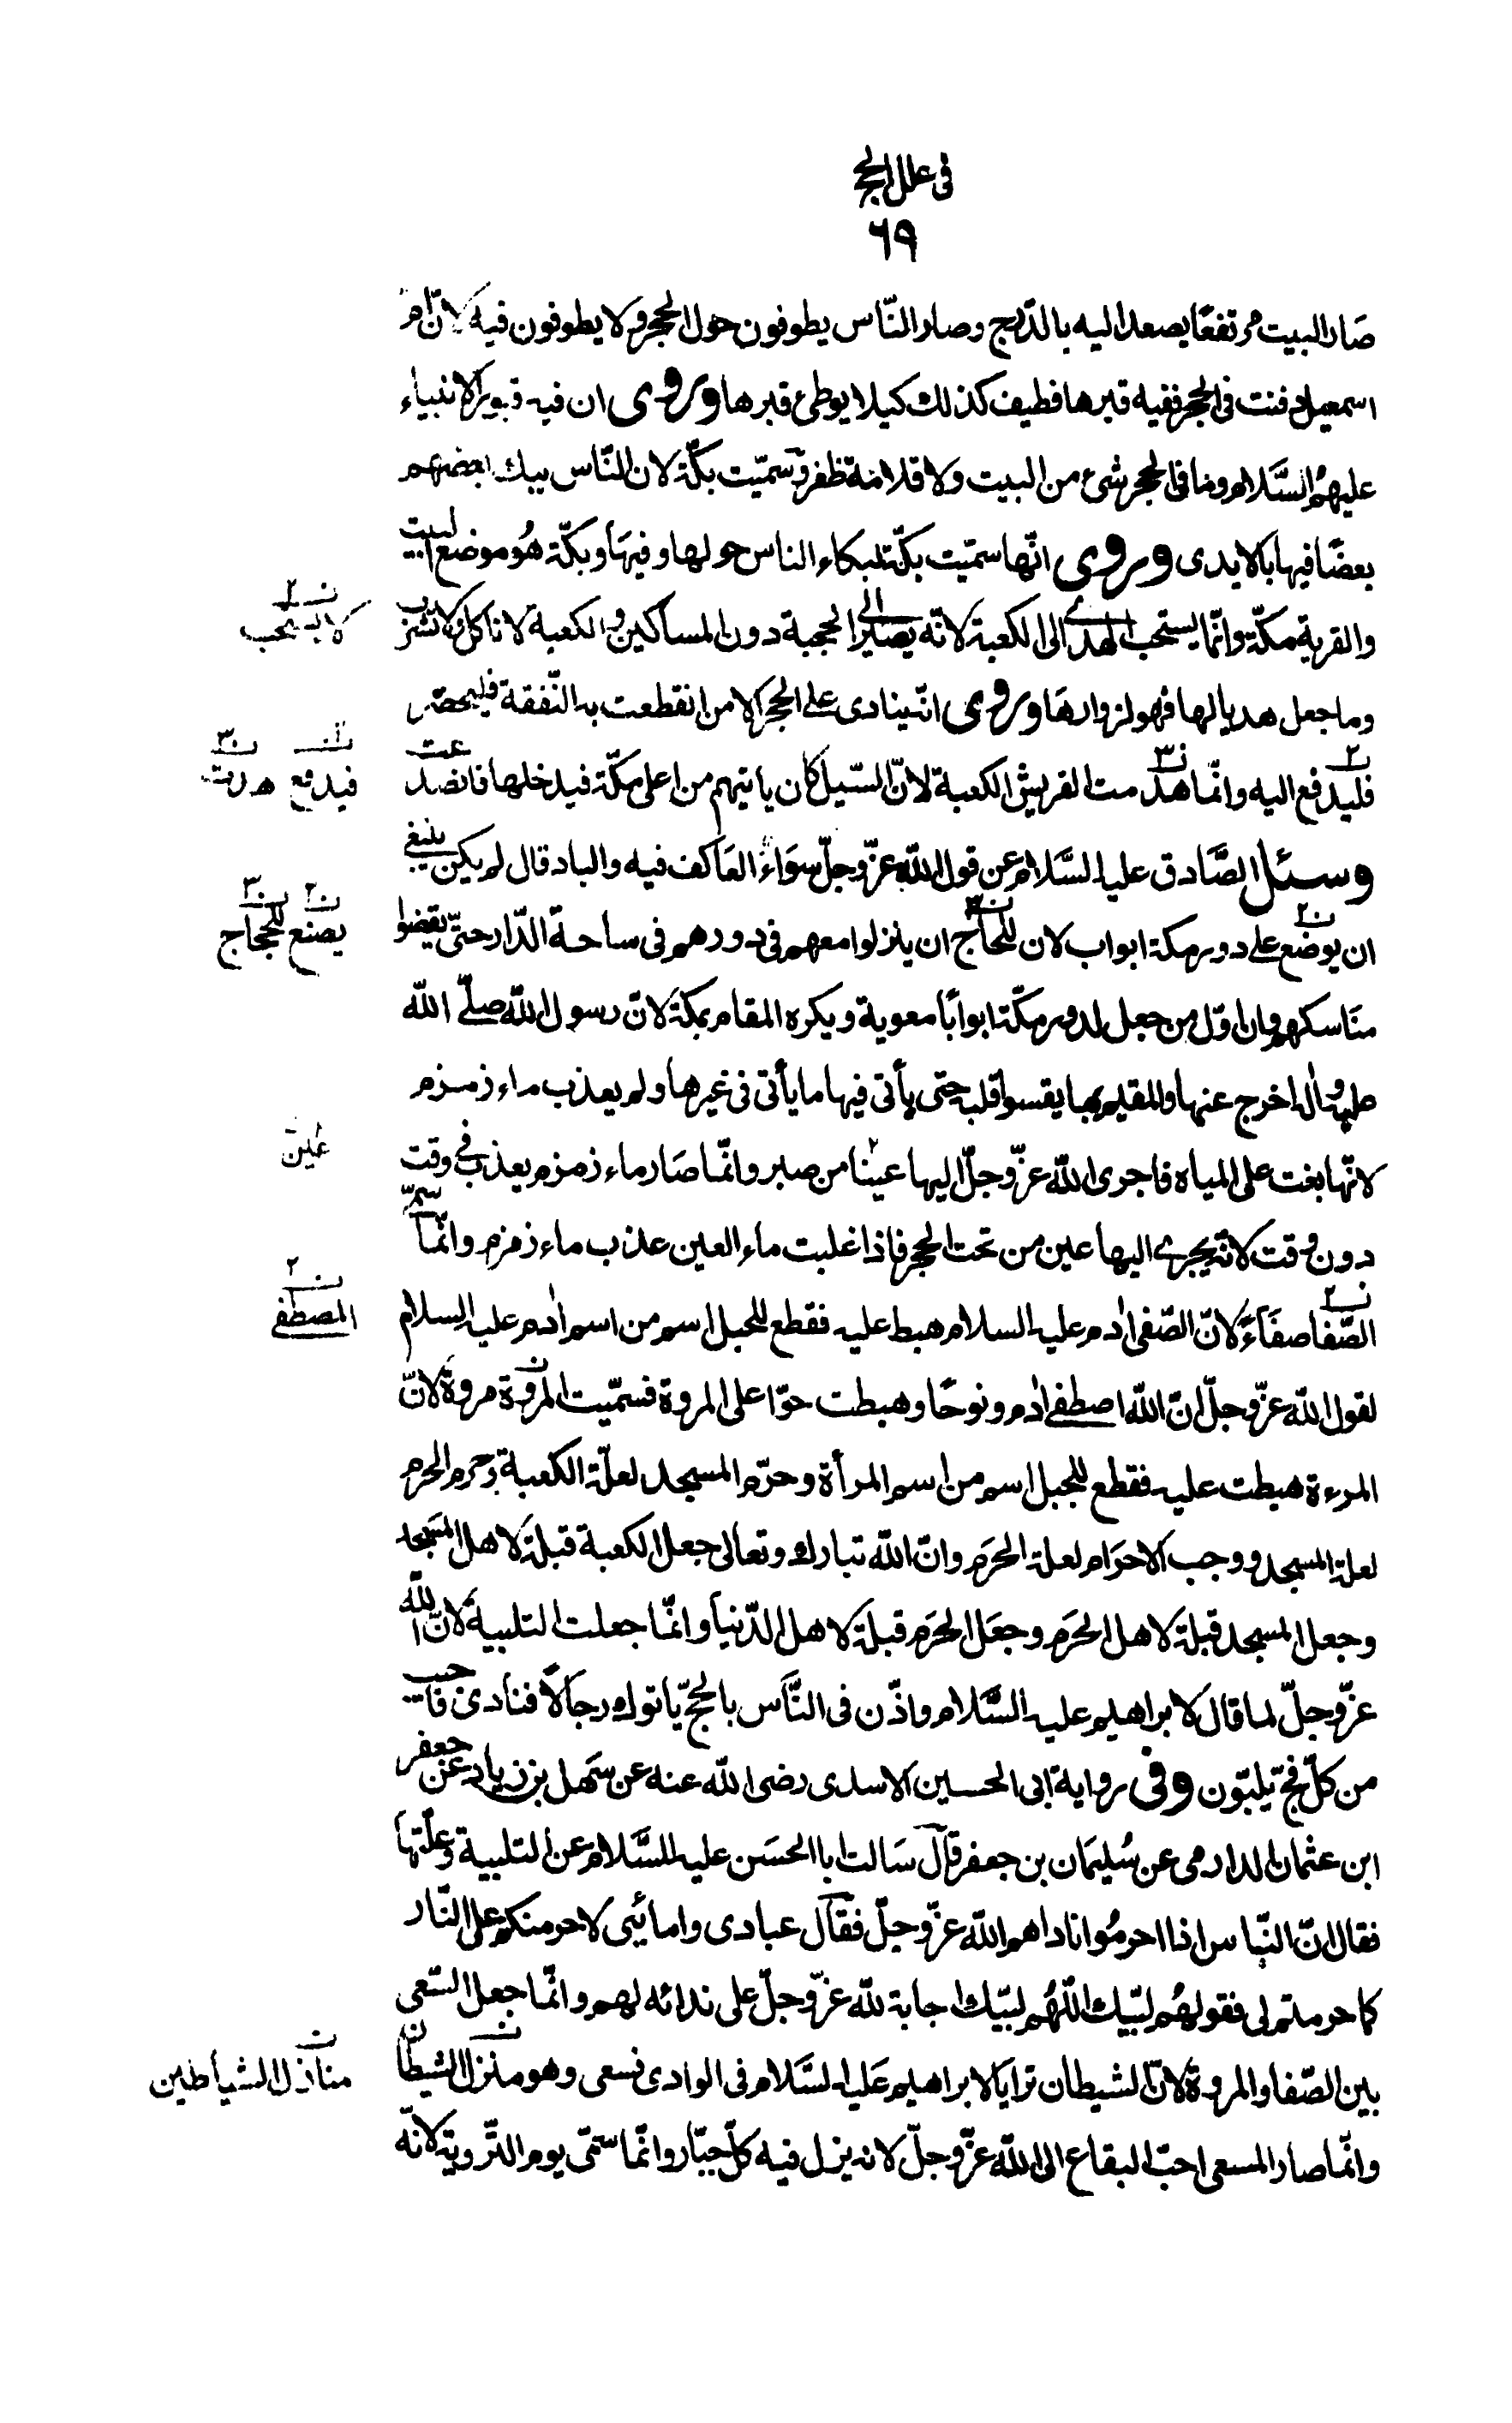 فى علل الحج
٦٩
صَار البيت مرتفعًا يصعد اليه بالدّرج وصار النّاس يطوفون حول الحجر ولا يطوفون فيه لانّ امّ
اسمعيل دفنت فى الحجر ففيه قبرها فطيف كذلك كيلا يوطئ قبرها وروى ان فيه قبور الانبياء
عليهمُ السَّلام وما فى الحجر شئ من البيت ولا قلامة ظفر وسمّيت بكّة لان النّاس يبك بعضهم
بعضًا فيها بالايدى وروى انّها سمّيت بكّة لبكاء الناس حولها وفيها وبكّة هُو موضع البيت
والقرية مكّة وانّما يستحب الهدى الى الكعبة لانّه يصير الى الحجبة دون المساكين والكعبة لا تاكل ولا تشرب
لا يستحب
وما جعل هديا لها فهو لزوارها وروى انّه ينادى على الحجر الا من انقطعت به النّفقة فليحضر
فليدفع اليه وانّما هدمت القريش الكعبة لانّ السّيل كان ياتيهم من اعلى مكّة فيدخلها فانصدعت
فيدفع هدرت
وسئل الصَّادق عليه السَّلام عن قول اللّه عزّ وجلّ سوَاءً العَاكف فيه والباد قال لم يكن ينبغى
ان يوضع على دور مكة ابواب لان للحاج ان ينزلوا معهم فى دورهم فى ساحة الدّار حتّى يقضوا
يصنع للحجاج
منَاسكهم وان اوّل من جعل لدور مكّة ابوابًا معوية ويكره المقام بمكة لانّ رسول اللّه صلّى اللّه
عليه واله اخرج عنها والمقيم بها يقسوا قلبه حتى يأتى فيها ما يأتى فى غيرها ولم يعذب ماء زمزم
لانّها بغت على المياه فاجرى اللّه عزّ وجلّ اليها عينًا من صبر وانّما صَار ماء زمزم يعذب فى وقت
عين
دون وقت لانّه يجرى اليها عين من تحت الحجر فاذا غلبت ماء العين عذب ماء زمزم وانّما سمّى
الصّفا صفَاءً لانّ الصّفى ادم عليه السلام هبط عليه فقطع للجبل اسم من اسم ادم عليه السلام
المصطفى
لقول اللّه عزّ وجلّ انّ اللّه اصطفى ادم ونوحًا وهبطت حوّا على المروة فسمّيت المروة مروة لانّ
المرءة هبطت عليه فقطع للجبل اسم من اسم المرأة وحرّم المسجد لعلّة الكعبة وحرم الحرم
لعلة المسجد ووجب الاحرَام لعلة الحرَم وانّ اللّه تبارك وتعالى جعل الكعبة قبلة لاهل المسجد
وجعل المسجد قبلة لاهل الحرَم وجعَل الحرَم قبلة لاهل الدّنيا وانّما جعلت التلبية لانّ اللّه
عزّ وجلّ لما قال لابراهيم عليه السَّلام واذّن فى النَّاس بالحجّ يأتوك رجالاً فنادى فاجيب
من كلّ فجّ يلبّون وفى رواية ابى الحسين الاسدى رضى اللّه عنه عن سَهل بن زياد عن جعفر
ابن عثمان الدارمى عن سُليمَان بن جعفر قال سَالت ابا الحسَن عليه السَّلام عن التلبية وعلّتها
فقال انّ النّاس اذا احرمُوا ناداهم اللّه عزّ وجلّ فقال عبادى وامائى لاحرمنكم على النّار
كما حرمتم لى فقولهُم لبّيك اللّهُم لبّيك اجابة للّه عزّ وجلّ على ندائه لهم وانّما جعل السّعى
بين الصّفا والمروة لانّ الشيطان ترايا لابراهيم عَليه السَّلام فى الوادى فسعى وهو منزل الشيطان
منازل الشياطين
وانّما صار المسعى احبّ البقاع الى اللّه عزّ وجلّ لانه يزل فيه كلّ جبّار وانّما سمّى يوم التّروية لانّه